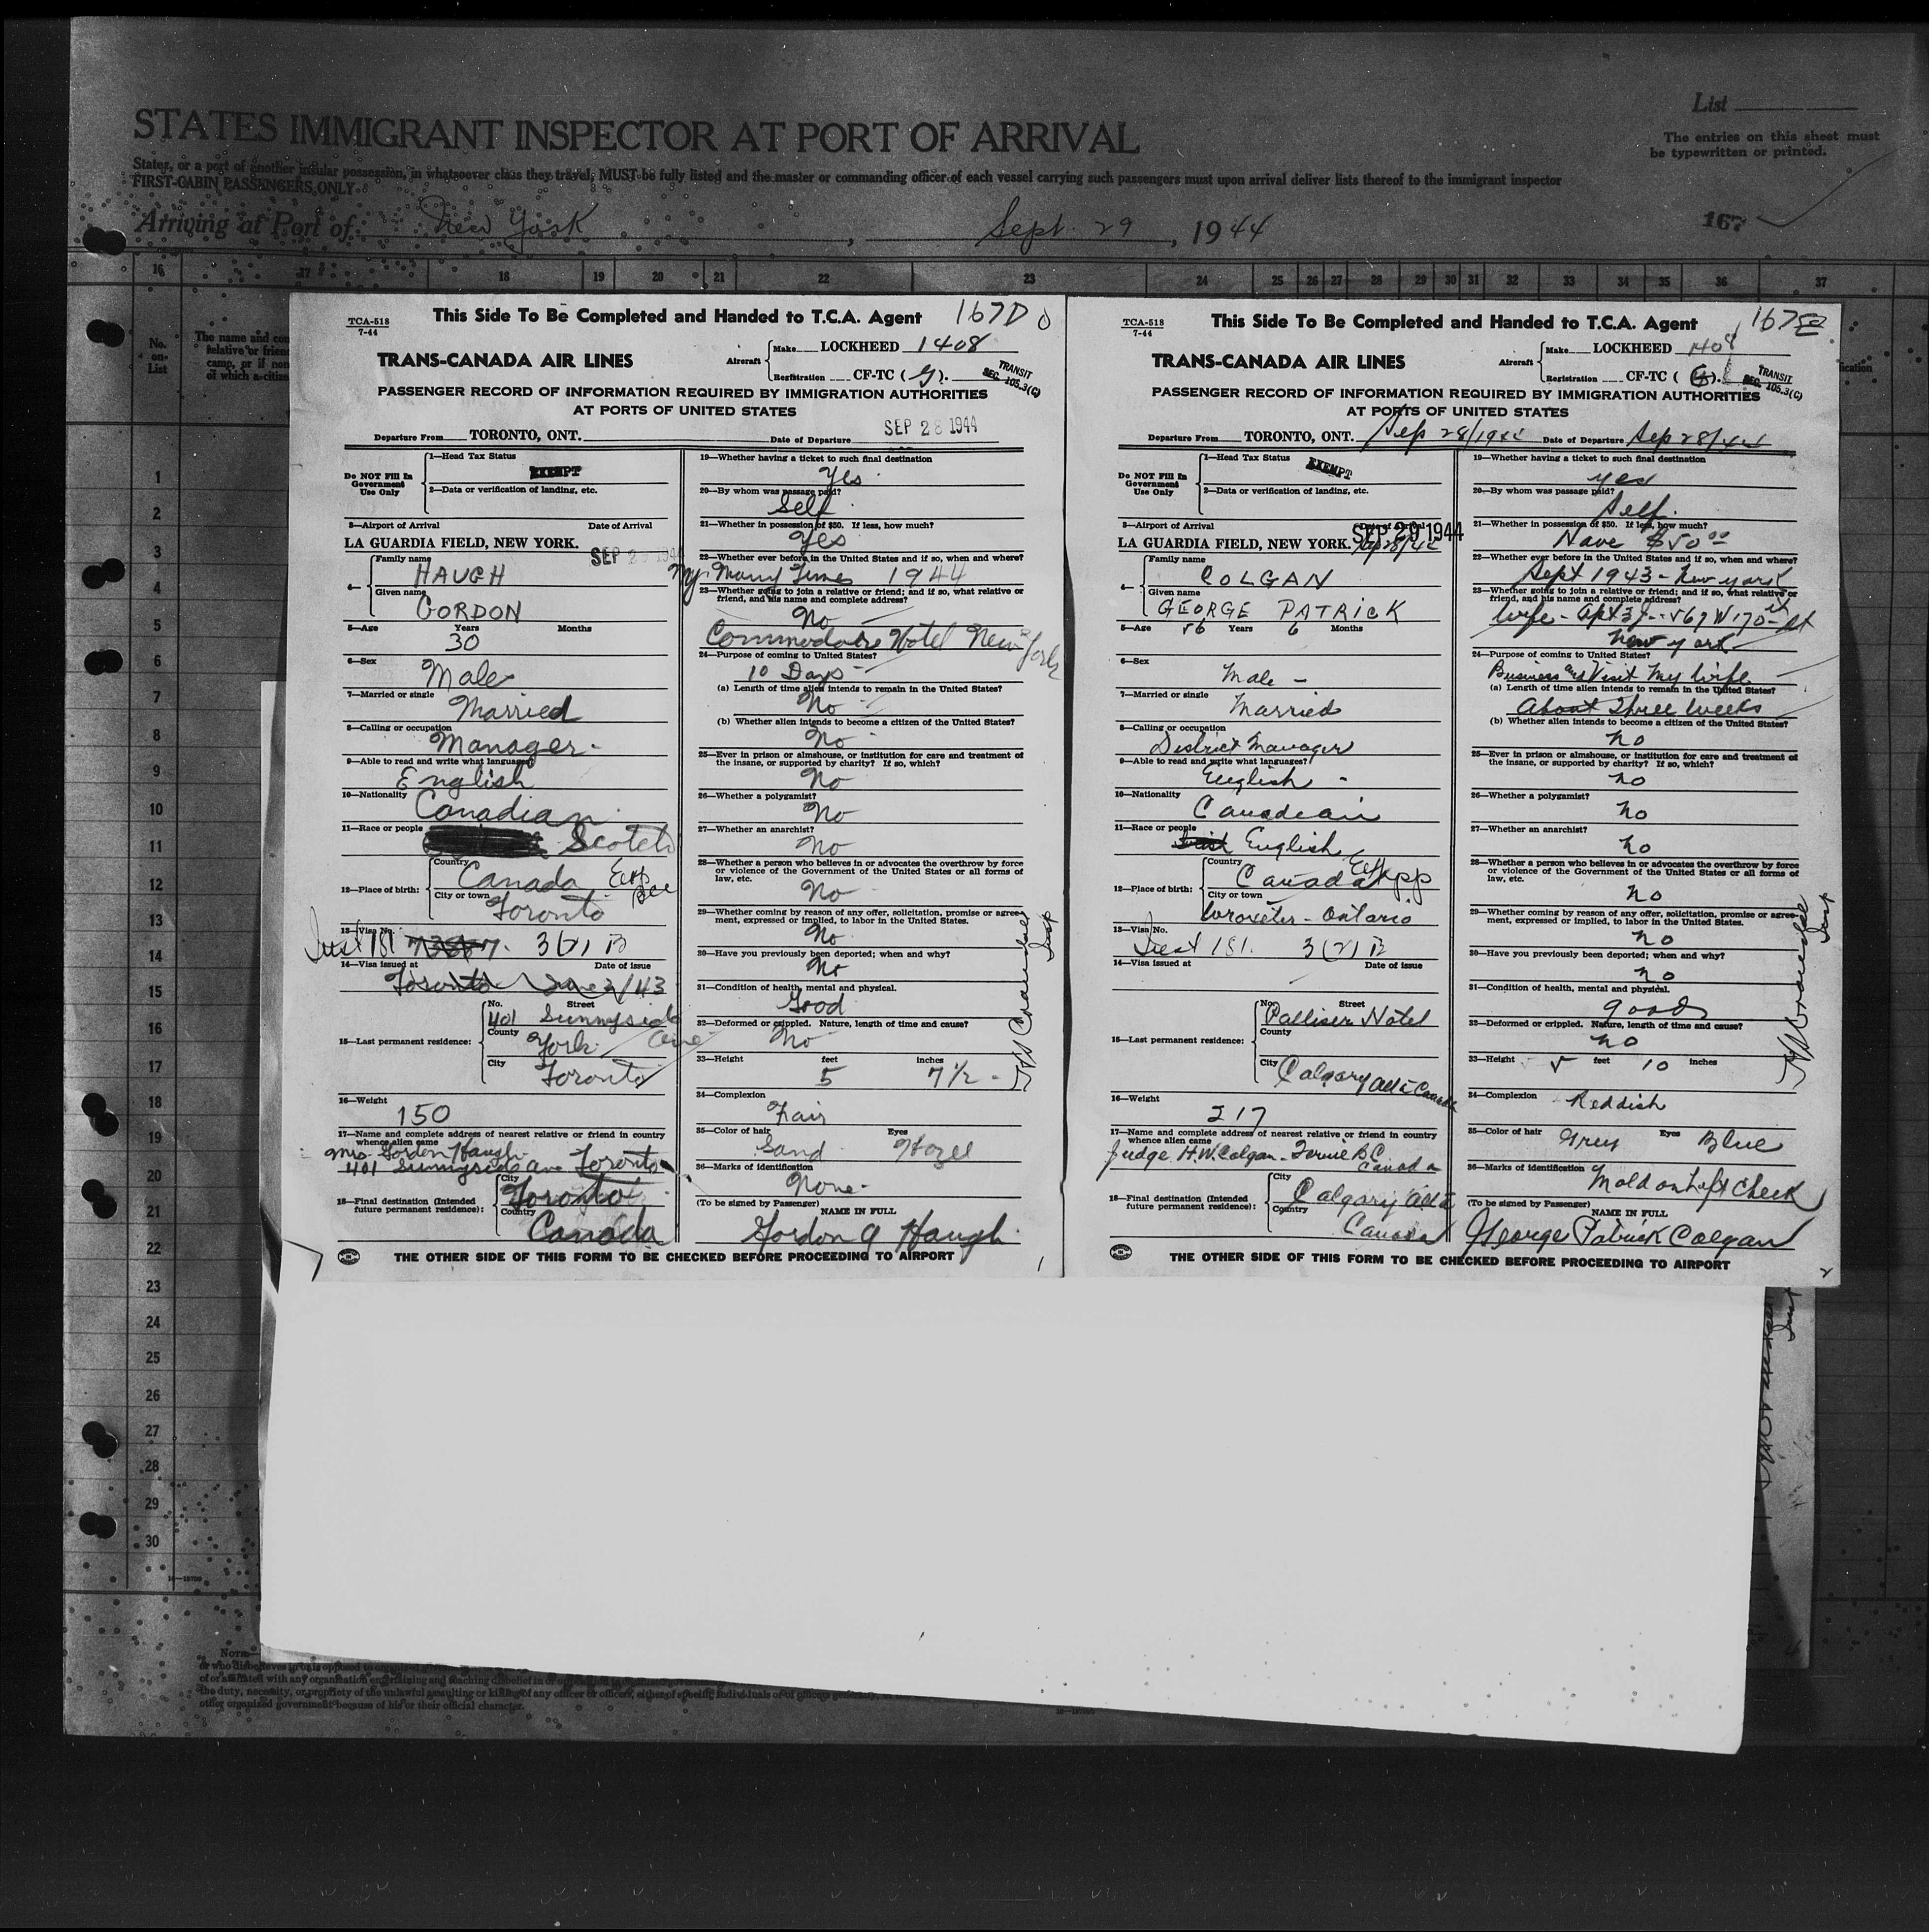 STATES IMMIGRANT INSPECTOR AT PORT OF ARRIVAL
List
The entries on this sheet must
be typewritten or printed.
States, or a port of another insular possession, in whatsoever class they travel, MUST be fully listed and the master or commanding officer of each vessel carrying such passengers must upon arrival deliver lists thereof to the immigrant inspector
FIRST-CABIN PASSENGERS ONLY
Arriving at Port of New York, Sept. 29, 1944
167
16 17 18 19 20 21 22 23 24 25 26 27 28 29 30 31 32 33 34 35 36 37
No. on List
The name and
relative or
camp, or if
of which a citiz
This Side To Be Completed and Handed to T.C.A. Agent 167D
TCA-518
7-44
TRANS-CANADA AIR LINES
Aircraft Make LOCKHEED 1408
Registration CF-TC (G).
TRANSIT
SEC. 105.3(C)
PASSENGER RECORD OF INFORMATION REQUIRED BY IMMIGRATION AUTHORITIES
AT PORTS OF UNITED STATES
Departure From TORONTO, ONT. Date of Departure SEP 28 1944
Do NOT Fill In
Government
Use Only
1—Head Tax Status
EXEMPT
2—Data or verification of landing, etc.
3—Airport of Arrival Date of Arrival
LA GUARDIA FIELD, NEW YORK. SEP 2 1944
4— Family name
HAUGH
Given name
GORDON
5—Age Years Months
30
6—Sex
Male
7—Married or single
Married
8—Calling or occupation
Manager
9—Able to read and write what languages
English
10—Nationality
Canadian
11—Race or people
Scotch
12—Place of birth: Country
Canada
City or town
Toronto
13—Visa No.
181 3(2) B
14—Visa issued at Date of issue
Toronto June 2/43
15—Last permanent residence: No. Street
401 Sunnyside Ave
County
York
City
Toronto
16—Weight
150
17—Name and complete address of nearest relative or friend in country
whence alien came
Mrs. Gordon Haugh
401 Sunnyside Ave Toronto
18—Final destination (Intended
future permanent residence): City
Toronto
Country
Canada
19—Whether having a ticket to such final destination
Yes
20—By whom was passage paid?
Self
21—Whether in possession of $50. If less, how much?
Yes
22—Whether ever before in the United States and if so, when and where?
Many Times 1944
23—Whether going to join a relative or friend; and if so, what relative or
friend, and his name and complete address?
No
Commodore Hotel New York
24—Purpose of coming to United States?
10 Days
(a) Length of time alien intends to remain in the United States?
No
(b) Whether alien intends to become a citizen of the United States?
No
25—Ever in prison or almshouse, or institution for care and treatment of
the insane, or supported by charity? If so, which?
No
26—Whether a polygamist?
No
27—Whether an anarchist?
No
28—Whether a person who believes in or advocates the overthrow by force
or violence of the Government of the United States or all forms of
law, etc.
No
29—Whether coming by reason of any offer, solicitation, promise or agree-
ment, expressed or implied, to labor in the United States.
No
30—Have you previously been deported; when and why?
No
31—Condition of health, mental and physical.
Good
32—Deformed or crippled. Nature, length of time and cause?
No
33—Height feet inches
5 7½
34—Complexion
Fair
35—Color of hair Eyes
Sand Hazel
36—Marks of identification
None
(To be signed by Passenger)
NAME IN FULL
Gordon A Haugh
THE OTHER SIDE OF THIS FORM TO BE CHECKED BEFORE PROCEEDING TO AIRPORT
1
This Side To Be Completed and Handed to T.C.A. Agent 167E
TCA-518
7-44
TRANS-CANADA AIR LINES
Aircraft Make LOCKHEED 1408
Registration CF-TC (G).
TRANSIT
SEC. 105.3(C)
PASSENGER RECORD OF INFORMATION REQUIRED BY IMMIGRATION AUTHORITIES
AT PORTS OF UNITED STATES
Departure From TORONTO, ONT. Sep 28/1944 Date of Departure Sep 28/44
Do NOT Fill In
Government
Use Only
1—Head Tax Status
EXEMPT
2—Data or verification of landing, etc.
3—Airport of Arrival Date of Arrival
LA GUARDIA FIELD, NEW YORK. SEP 29 1944
4— Family name
COLGAN
Given name
GEORGE PATRICK
5—Age 56 Years 6 Months
6—Sex
Male
7—Married or single
Married
8—Calling or occupation
District Manager
9—Able to read and write what languages?
English
10—Nationality
Canadian
11—Race or people
English
12—Place of birth: Country
Canada
City or town
Wroxeter - Ontario
13—Visa No.
181. 3(2) B
14—Visa issued at Date of issue
15—Last permanent residence: No. Street
Palliser Hotel
County
City
Calgary Alta Canada
16—Weight
217
17—Name and complete address of nearest relative or friend in country
whence alien came
Judge H.W. Colgan. Fernie B.C.
Canada
18—Final destination (Intended
future permanent residence): City
Calgary Alta
Country
Canada
19—Whether having a ticket to such final destination
yes
20—By whom was passage paid?
Self.
21—Whether in possession of $50. If less, how much?
Have $50.00
22—Whether ever before in the United States and if so, when and where?
Sept 1943 - New York
23—Whether going to join a relative or friend; and if so, what relative or
friend, and his name and complete address?
Wife - Apt 37 - 567 W 170 St
New York
24—Purpose of coming to United States?
Business and Visit My Wife
(a) Length of time alien intends to remain in the United States?
About Three Weeks
(b) Whether alien intends to become a citizen of the United States?
no
25—Ever in prison or almshouse, or institution for care and treatment of
the insane, or supported by charity? If so, which?
no
26—Whether a polygamist?
no
27—Whether an anarchist?
no
28—Whether a person who believes in or advocates the overthrow by force
or violence of the Government of the United States or all forms of
law, etc.
no
29—Whether coming by reason of any offer, solicitation, promise or agree-
ment, expressed or implied, to labor in the United States.
no
30—Have you previously been deported; when and why?
no
31—Condition of health, mental and physical.
good
32—Deformed or crippled. Nature, length of time and cause?
no
33—Height 5 feet 10 inches
34—Complexion
Reddish
35—Color of hair Grey Eyes Blue
36—Marks of identification
Mold on Left Cheek
(To be signed by Passenger)
NAME IN FULL
George Patrick Colgan
THE OTHER SIDE OF THIS FORM TO BE CHECKED BEFORE PROCEEDING TO AIRPORT
2
1
2
3
4
5
6
7
8
9
10
11
12
13
14
15
16
17
18
19
20
21
22
23
24
25
26
27
28
29
30
of or affiliated with any organization entertaining and teaching disbelief in or
the duty, necessity, or propriety of the unlawful assaulting or killing of any officer or officers, either of specific individuals or of officers generally,
other organized government because of his or their official character.